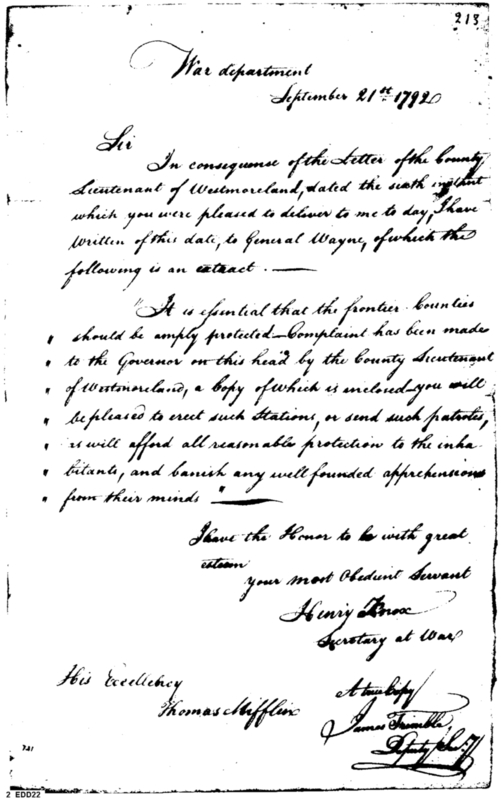 213
War department
September 21st 1792
Sir
In consequense of the Letter of the County
Lieutenant of Westmoreland, dated the sixth instant
which you were pleased to deliver to me to day, I have
written of this date, to General Wayne, of which the
following is an extract. —
"It is essential that the frontier Counties
" should be amply protected—Complaint has been made
" to the Governor on this head by the County Lieutenant
" of Westmoreland, a Copy of which is inclosed—you will
" be pleased to erect such Stations, or send such patroles,
" as will afford all reasonable protection to the inha
" bitants, and banish any well founded apprehensions
" from their minds" —
I have the Honor to be with great
esteem
your most Obedient Servant
Henry Knox
Secretary at War
His Excellency
Thomas Mifflin
A true Copy
James Trimble,
Deputy Secy
2 EDD22